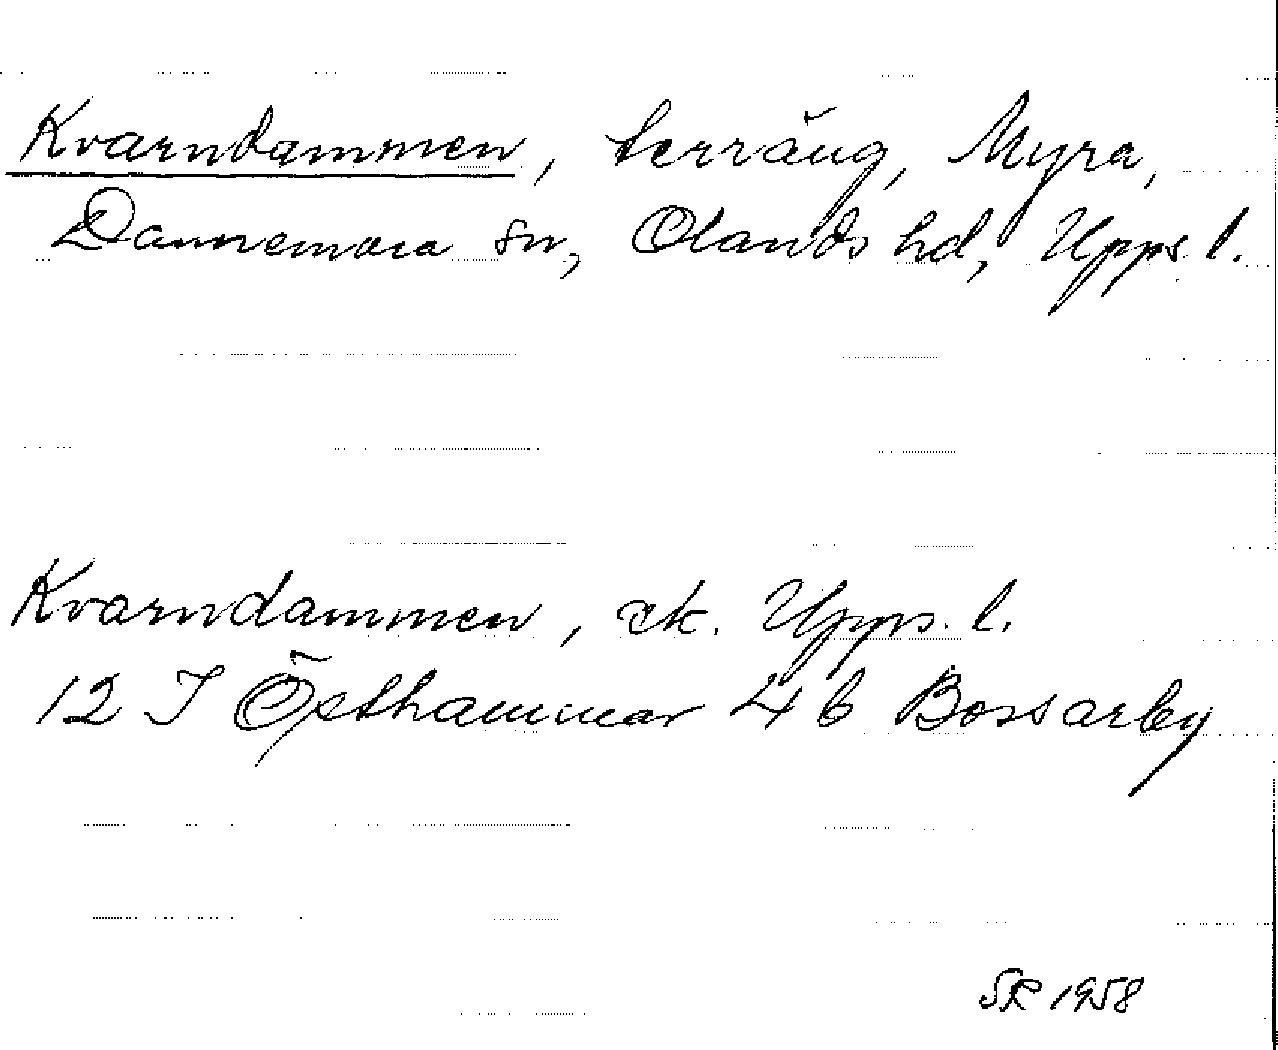 Kvarndammen, terräng, Myra,
Dannemora sn, Olands hd, Upps. l.
Kvarndammen, ek. Upps. l.
12 I Östhammar 4 b Bossarby
SR 1958